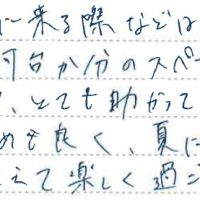 に来る際などは
何台か分のスペー
、とても助かって
めも良く、夏に
えて楽しく過ご